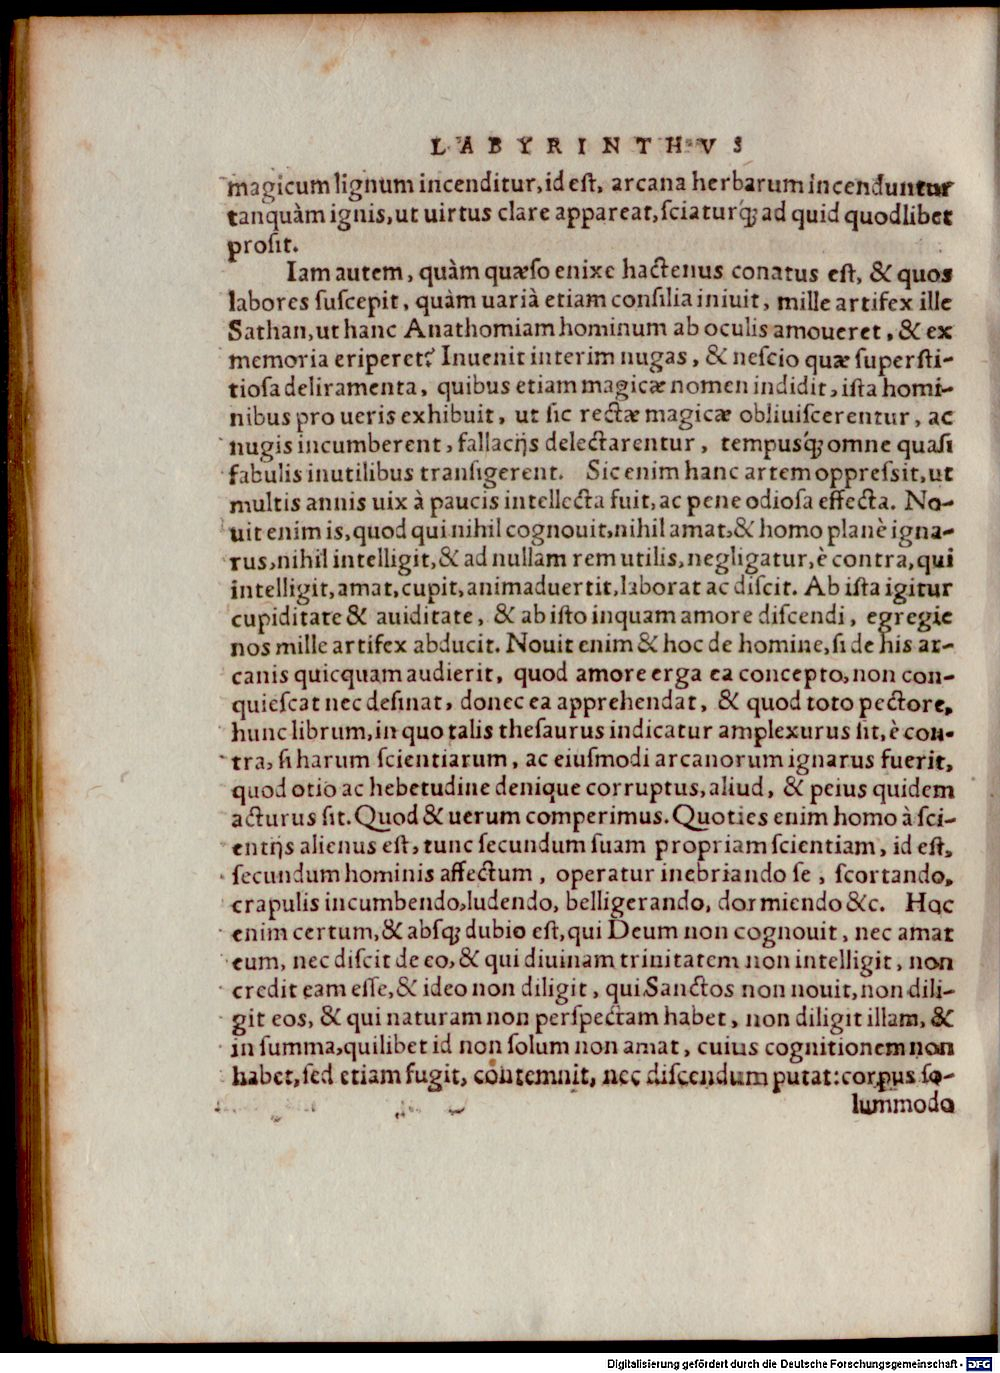 LABYRINTHVS
magicum lignum incenditur, id eſt, arcana herbarum incenduntur
tanquàm ignis, ut uirtus clare appareat, ſciaturq́; ad quid quodlibet
proſit.
Iam autem, quàm quæſo enixe hactenus conatus eſt, & quos
labores ſuſcepit, quàm uarià etiam conſilia iniuit, mille artifex ille
Sathan, ut hanc Anathomiam hominum ab oculis amoueret, & ex
memoria eriperet? Inuenit interim nugas, & neſcio quæ ſuperſti-
tioſa deliramenta, quibus etiam magicæ nomen indidit, iſta homi-
nibus pro ueris exhibuit, ut ſic rectæ magicæ obliuiſcerentur, ac
nugis incumberent, fallacijs delectarentur, tempusq́; omne quaſi
fabulis inutilibus tranſigerent. Sic enim hanc artem oppreſsit, ut
multis annis uix à paucis intellecta fuit, ac pene odioſa effecta. No-
uit enim is, quod qui nihil cognouit, nihil amat, & homo planè igna-
rus, nihil intelligit, & ad nullam rem utilis, negligatur, è contra, qui
intelligit, amat, cupit, animaduertit, laborat ac diſcit. Ab iſta igitur
cupiditate & auiditate, & ab iſto inquam amore diſcendi, egregie
nos mille artifex abducit. Nouit enim & hoc de homine, ſi de his ar-
canis quicquam audierit, quod amore erga ea concepto, non con-
quieſcat nec deſinat, donec ea apprehendat, & quod toto pectore,
hunc librum, in quo talis theſaurus indicatur amplexurus ſit, è con-
tra, ſi harum ſcientiarum, ac eiuſmodi arcanorum ignarus fuerit,
quod otio ac hebetudine denique corruptus, aliud, & peius quidem
acturus ſit. Quod & uerum comperimus. Quoties enim homo à ſci-
entijs alienus eſt, tunc ſecundum ſuam propriam ſcientiam, id eſt,
ſecundum hominis affectum, operatur inebriando ſe, ſcortando,
crapulis incumbendo, ludendo, belligerando, dormiendo &c. Hoc
enim certum, & absq; dubio eſt, qui Deum non cognouit, nec amat
eum, nec diſcit de eo, & qui diuinam trinitatem non intelligit, non
credit eam eſſe, & ideo non diligit, qui Sanctos non nouit, non dili-
git eos, & qui naturam non perſpectam habet, non diligit illam, &
in ſumma, quilibet id non ſolum non amat, cuius cognitionem non
habet, ſed etiam fugit, contemnit, nec diſcendum putat: corpus ſo-
lummodo
Digitalisierung gefördert durch die Deutsche Forschungsgemeinschaft - DFG